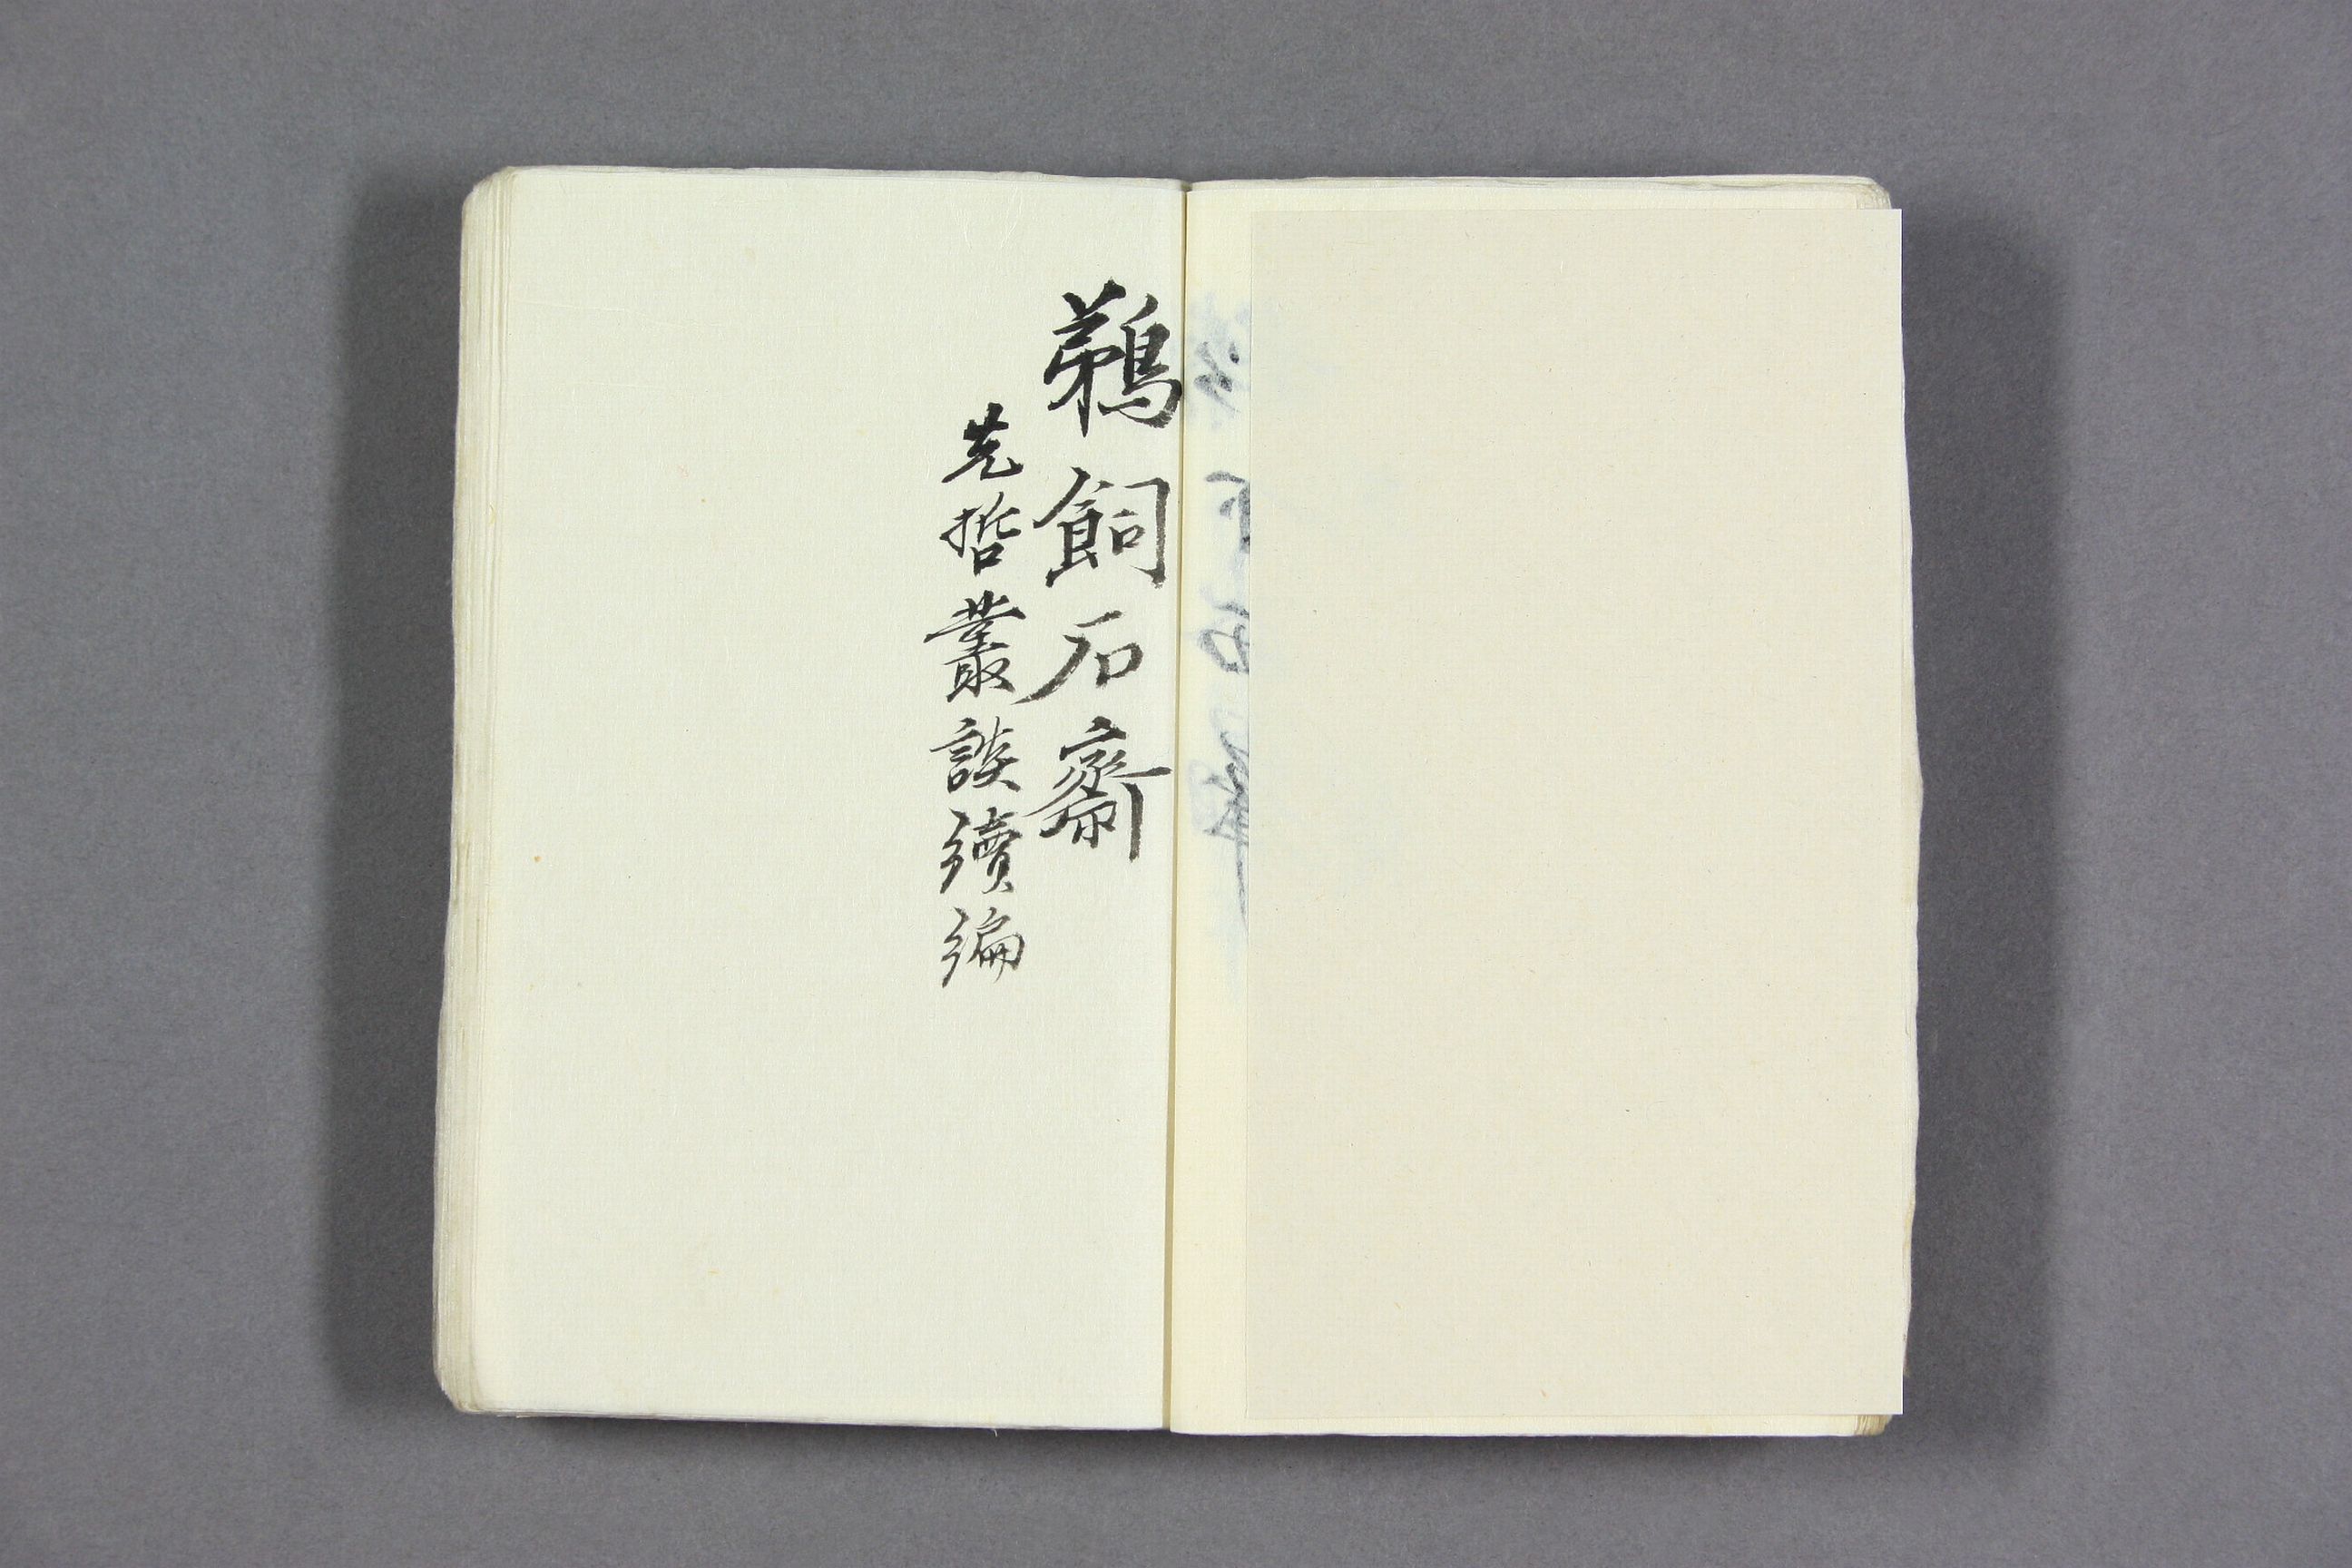 鵜飼石齋
先哲叢談續編